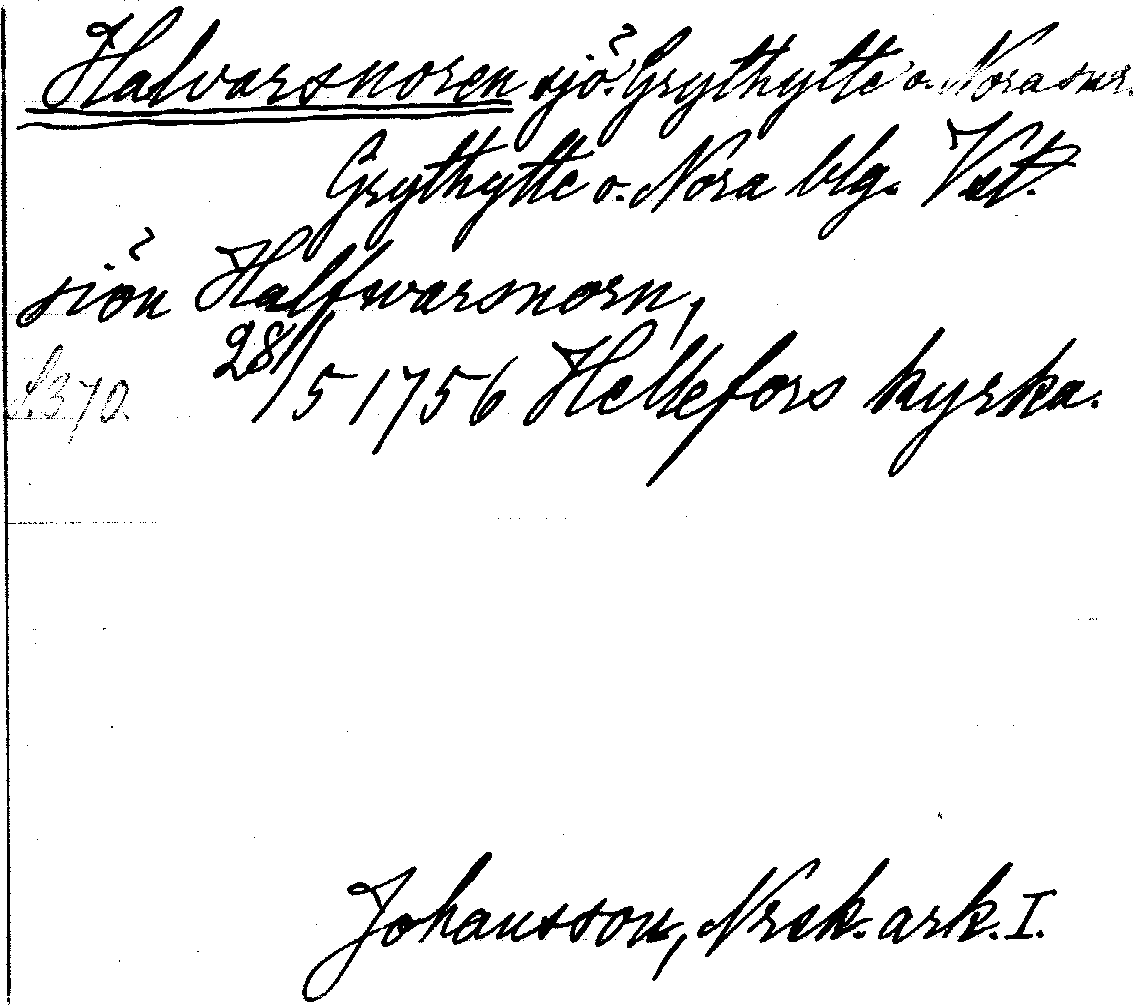 Halvarsnoren sjö. Grythytte o. Nora snr.
Grythytte o. Nora blg. Vstm.
siön Halfwarsnorn,
S. 370. 28/5 1756 Hellefors kyrka.
Johansson, Nrsk. ark. I.